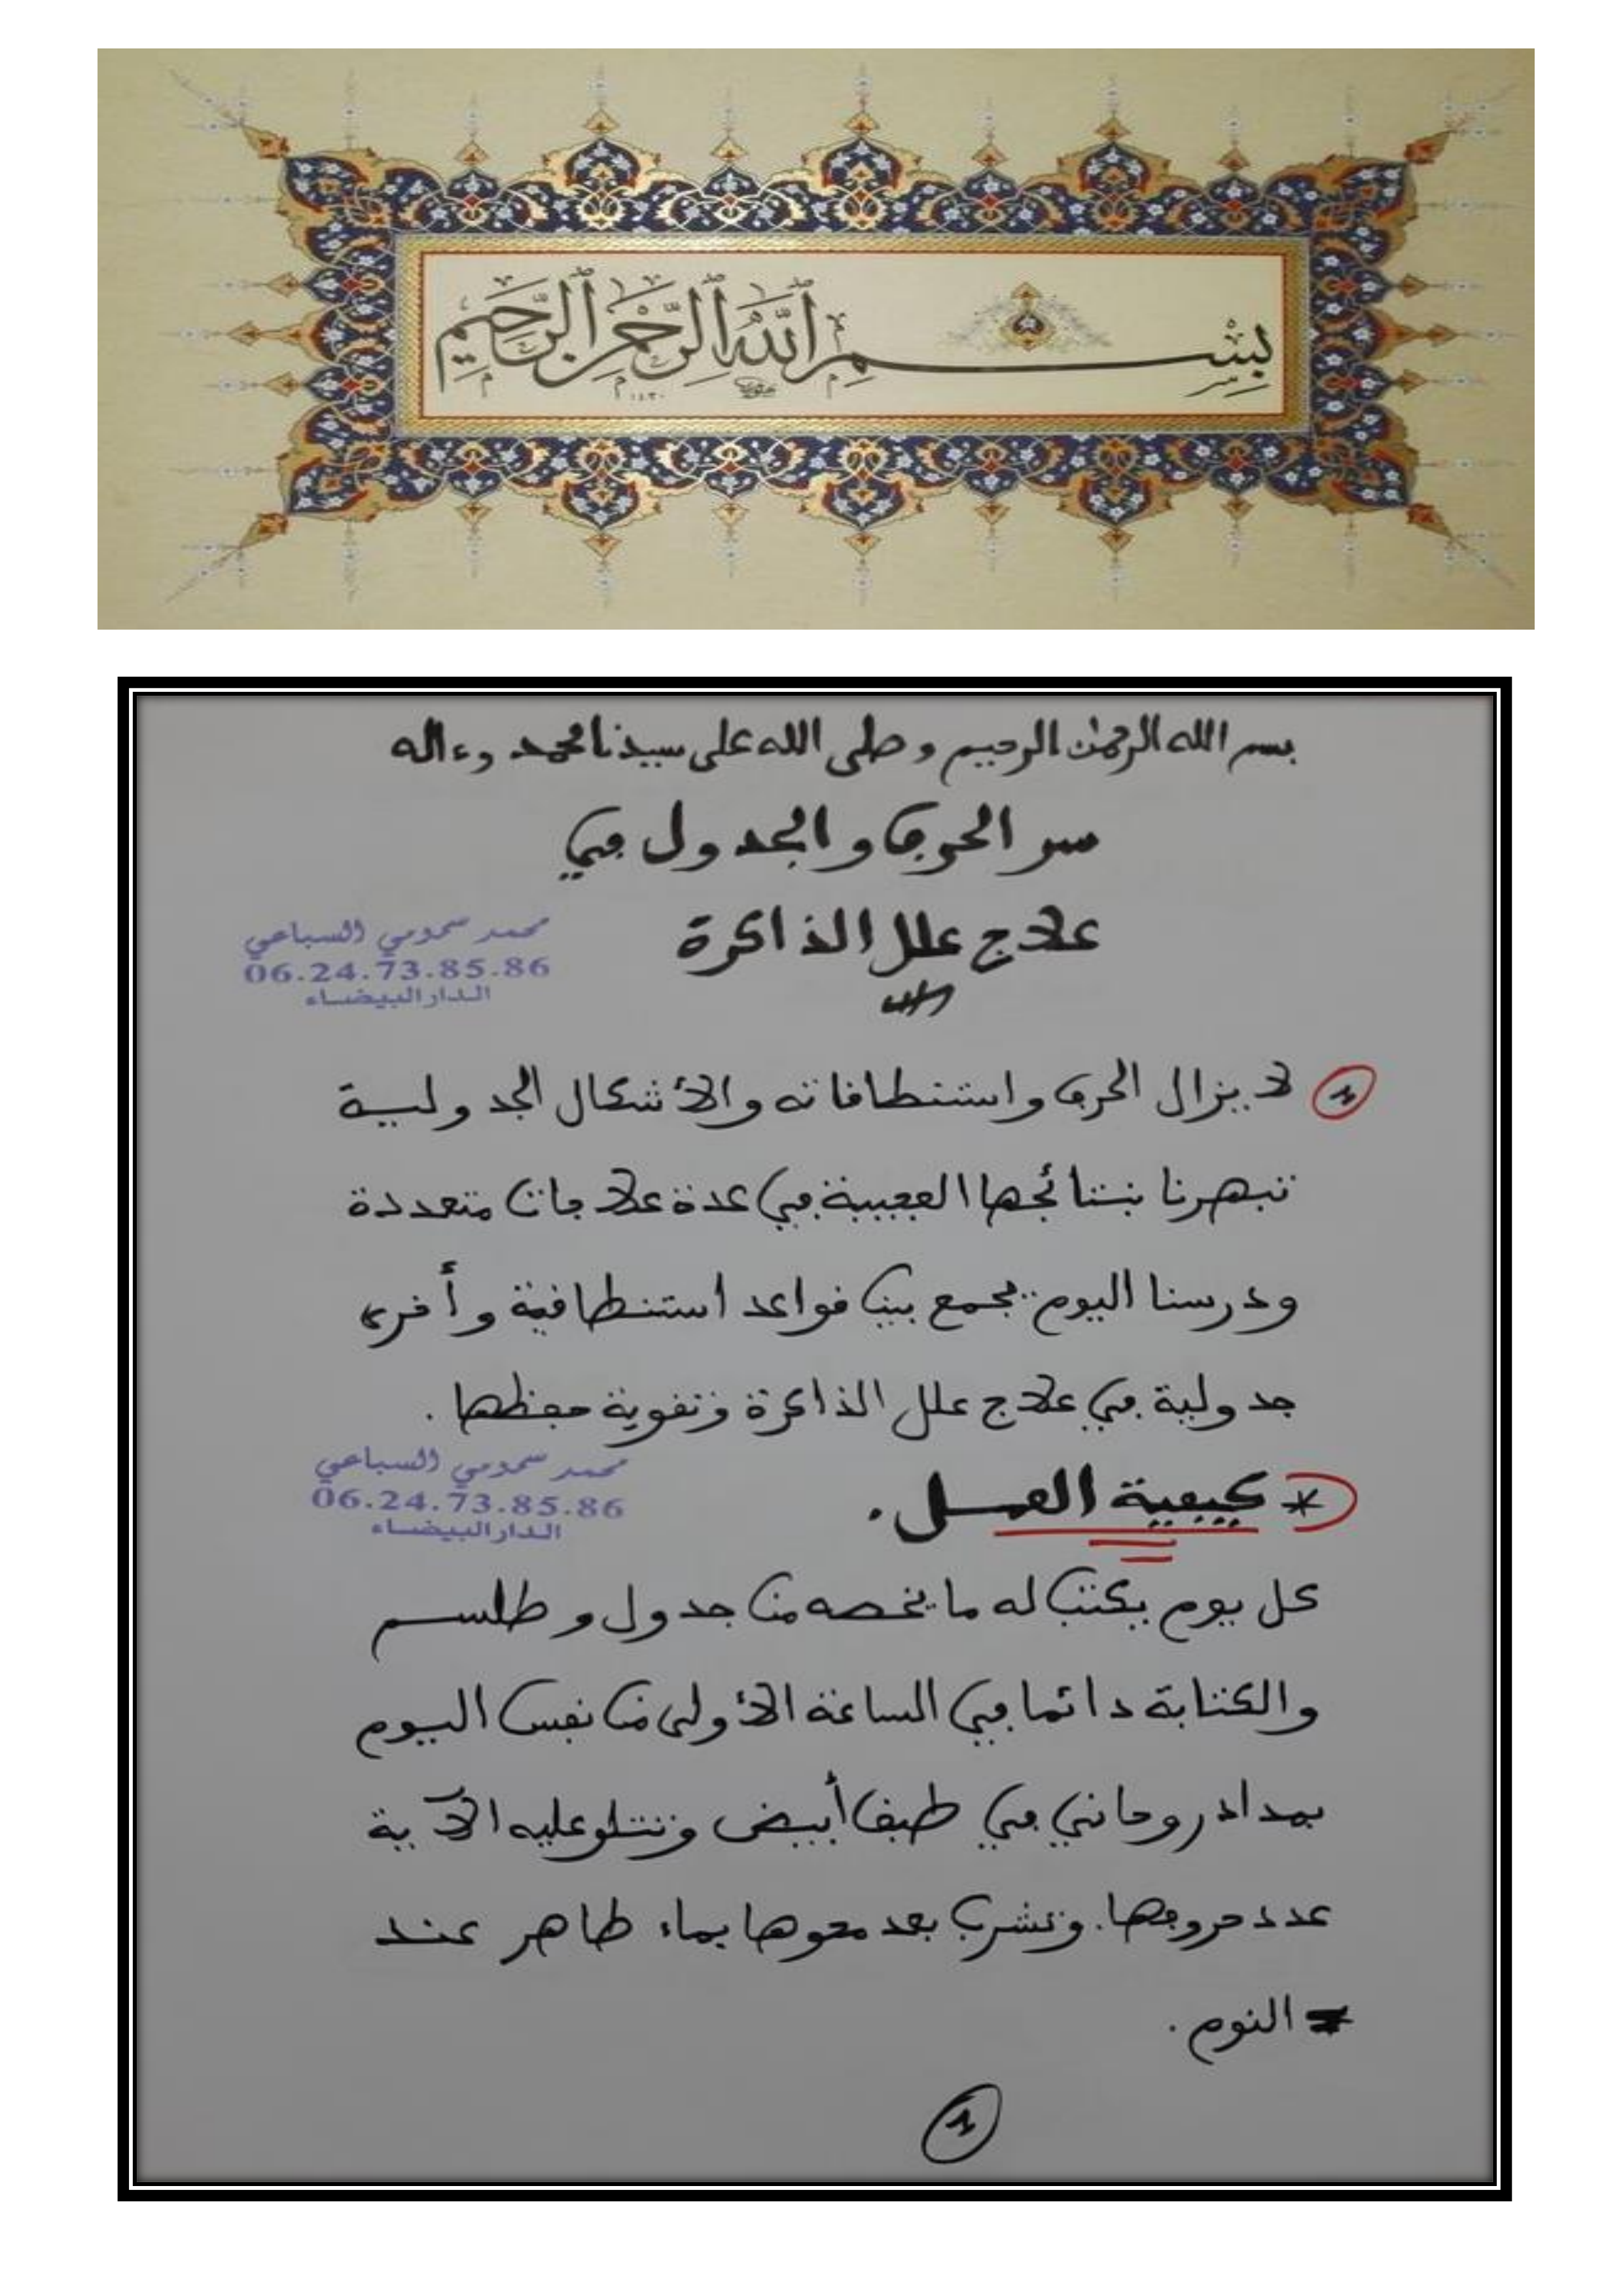 بِسْمِ ٱللَّهِ ٱلرَّحْمَٰنِ ٱلرَّحِيمِ
١٤٣٠
بسم الله الرحمن الرحيم وصلى الله على سيدنا محمد وءاله
سر الحرف والجدول في
علاج علل الذاكرة
محمد سحومي السباعي
06.24.73.85.86
الدار البيضاء
1 لا يزال الحرف واستنطاقاته والأشكال الجدولية
تبهرنا بنتائجها العجيبة في عدة علاجات متعددة
ودرسنا اليوم يجمع بين قواعد استنطاقية وأخرى
جدولية في علاج علل الذاكرة وتقوية حفظها .
محمد سحومي السباعي
06.24.73.85.86
الدار البيضاء
* كيفية العمل .
كل يوم يكتب له ما يخصه من جدول و طلسم
والكتابة دائما في الساعة الأولى من نفس اليوم
بمداد روحاني في طبق أبيض وتتلو عليه الآية
عدد حروفها. وتشرب بعد محوها بماء طاهر عند
النوم .
1